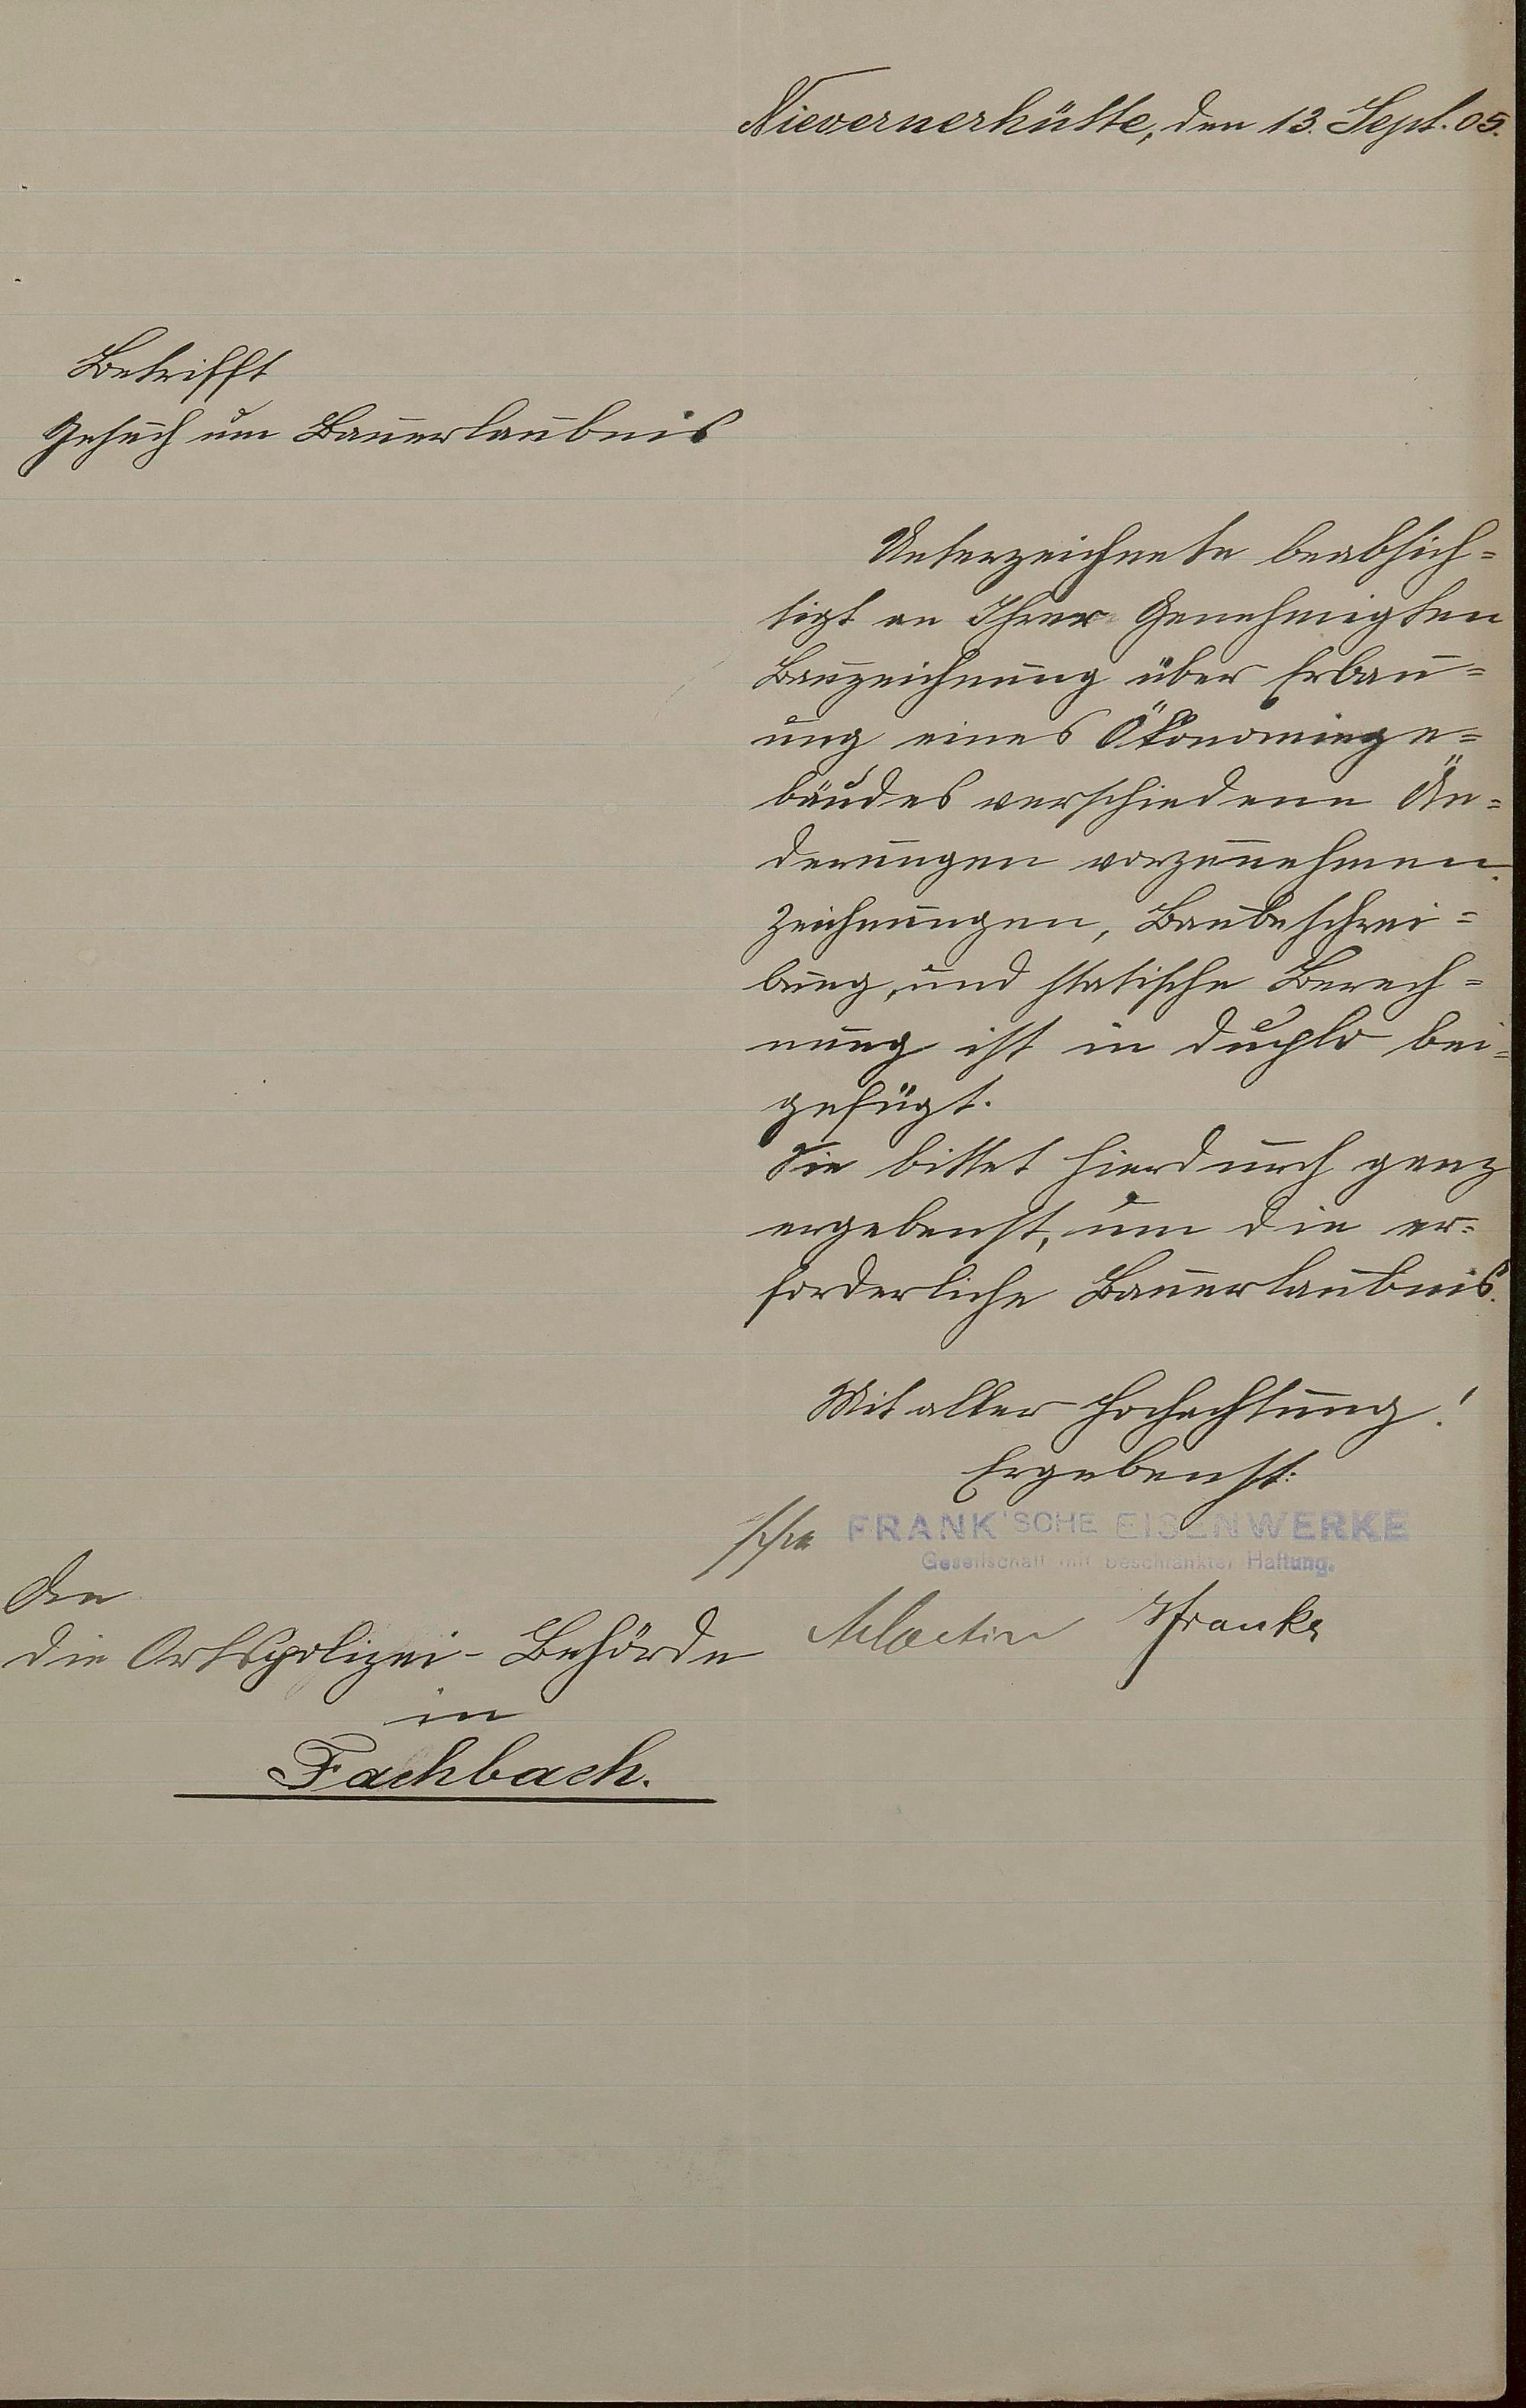 Nievernerhütte, den 13. Sept. 05.
Betrifft
Gesuch um Bauerlaubnis
Unterzeichnete beabsich=
tigt an Ihrer Genehmigten
Bauzeichnung über Erbau=
ung eines Ökonomiege=
bäudes verschiedene Än=
derungen vorzunehmen.
Zeichnungen, Baubeschrei=
bung, und statische Berech=
nung ist in duplo bei=
gefügt.
Sie bittet hierdurch ganz
ergebenst, um die er=
forderliche Bauerlaubnis.
Mit aller Hochachtung!
Ergebenst:
ppa FRANK'SCHE EISENWERKE
Gesellschaft mit beschränkter Haftung.
Martin Franke
An
die Ortspolizei-Behörde
in
Fachbach.